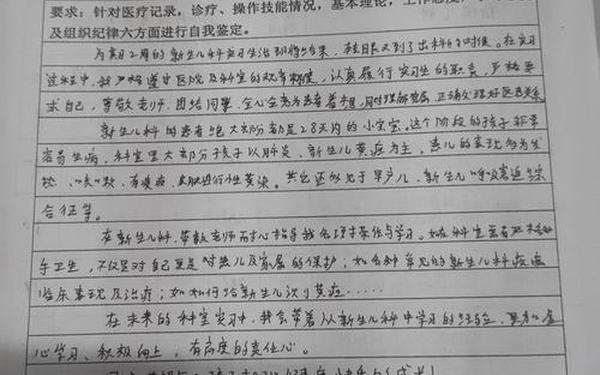 要求：针对医疗记录，诊疗、操作技能情况，基本理论，工作态度，
及组织纪律六方面进行自我鉴定。
为期2周的新生儿科实习生活即将结束，转眼又到了出科的时候。在实习
过程中，我严格遵守医院及科室的规章制度，认真履行实习生的职责，严格要
求自己，尊敬老师，团结同事，全心全意为患者着想，同时理解家属，正确处理好医患关系
新生儿科的患者绝大部分都是28天内的小宝宝。这个阶段的孩子非常
容易生病，科室里大部分孩子以肺炎、新生儿黄疸为主，患儿的表现多为发
热、咳嗽、有痰，皮肤进行性黄染。其它还多见于早产儿、新生儿呼吸窘迫综
合征等。
在新生儿科，带教老师耐心指导我各项操作与学习。如在科室里
手卫生，不仅是对自己更是对患儿及家属的保护；如各种常见的新生儿科疾病
临床表现及治疗；如如何给新生儿测黄疸……
在未来的科室实习中，我会带着从新生儿科中学习的经验，更加虚
心学习、积极向上，有高度的责任心。